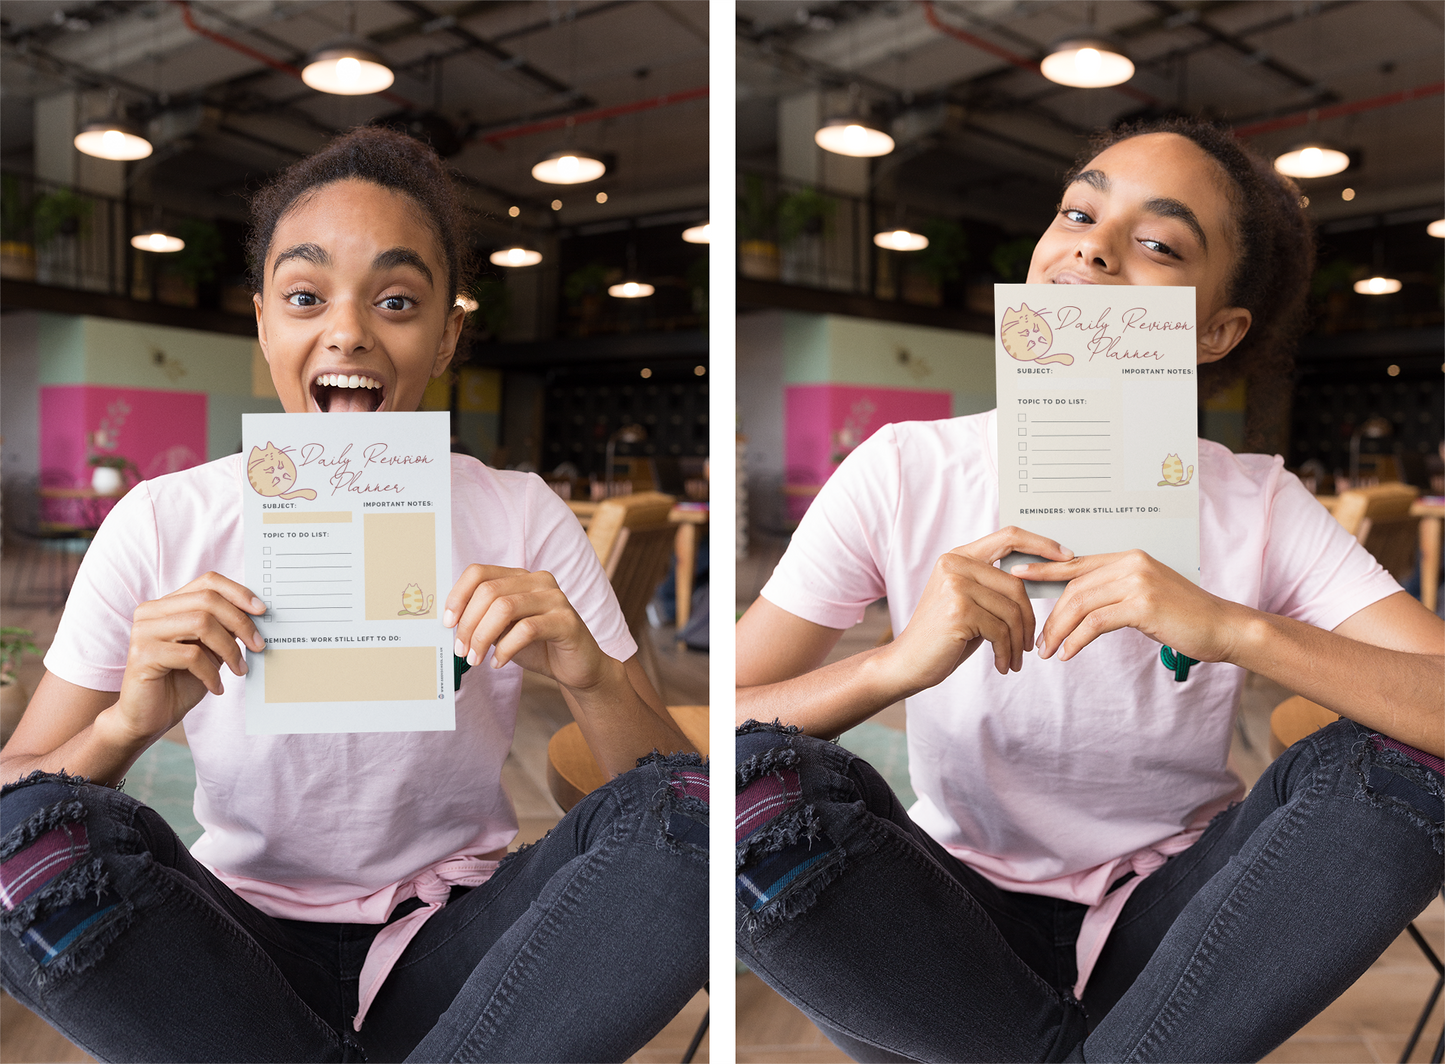 Daily Revision
Planner
SUBJECT:
IMPORTANT NOTES:
TOPIC TO DO LIST:
REMINDERS: WORK STILL LEFT TO DO:
Daily Revision
Planner
SUBJECT:
IMPORTANT NOTES:
TOPIC TO DO LIST:
REMINDERS: WORK STILL LEFT TO DO: